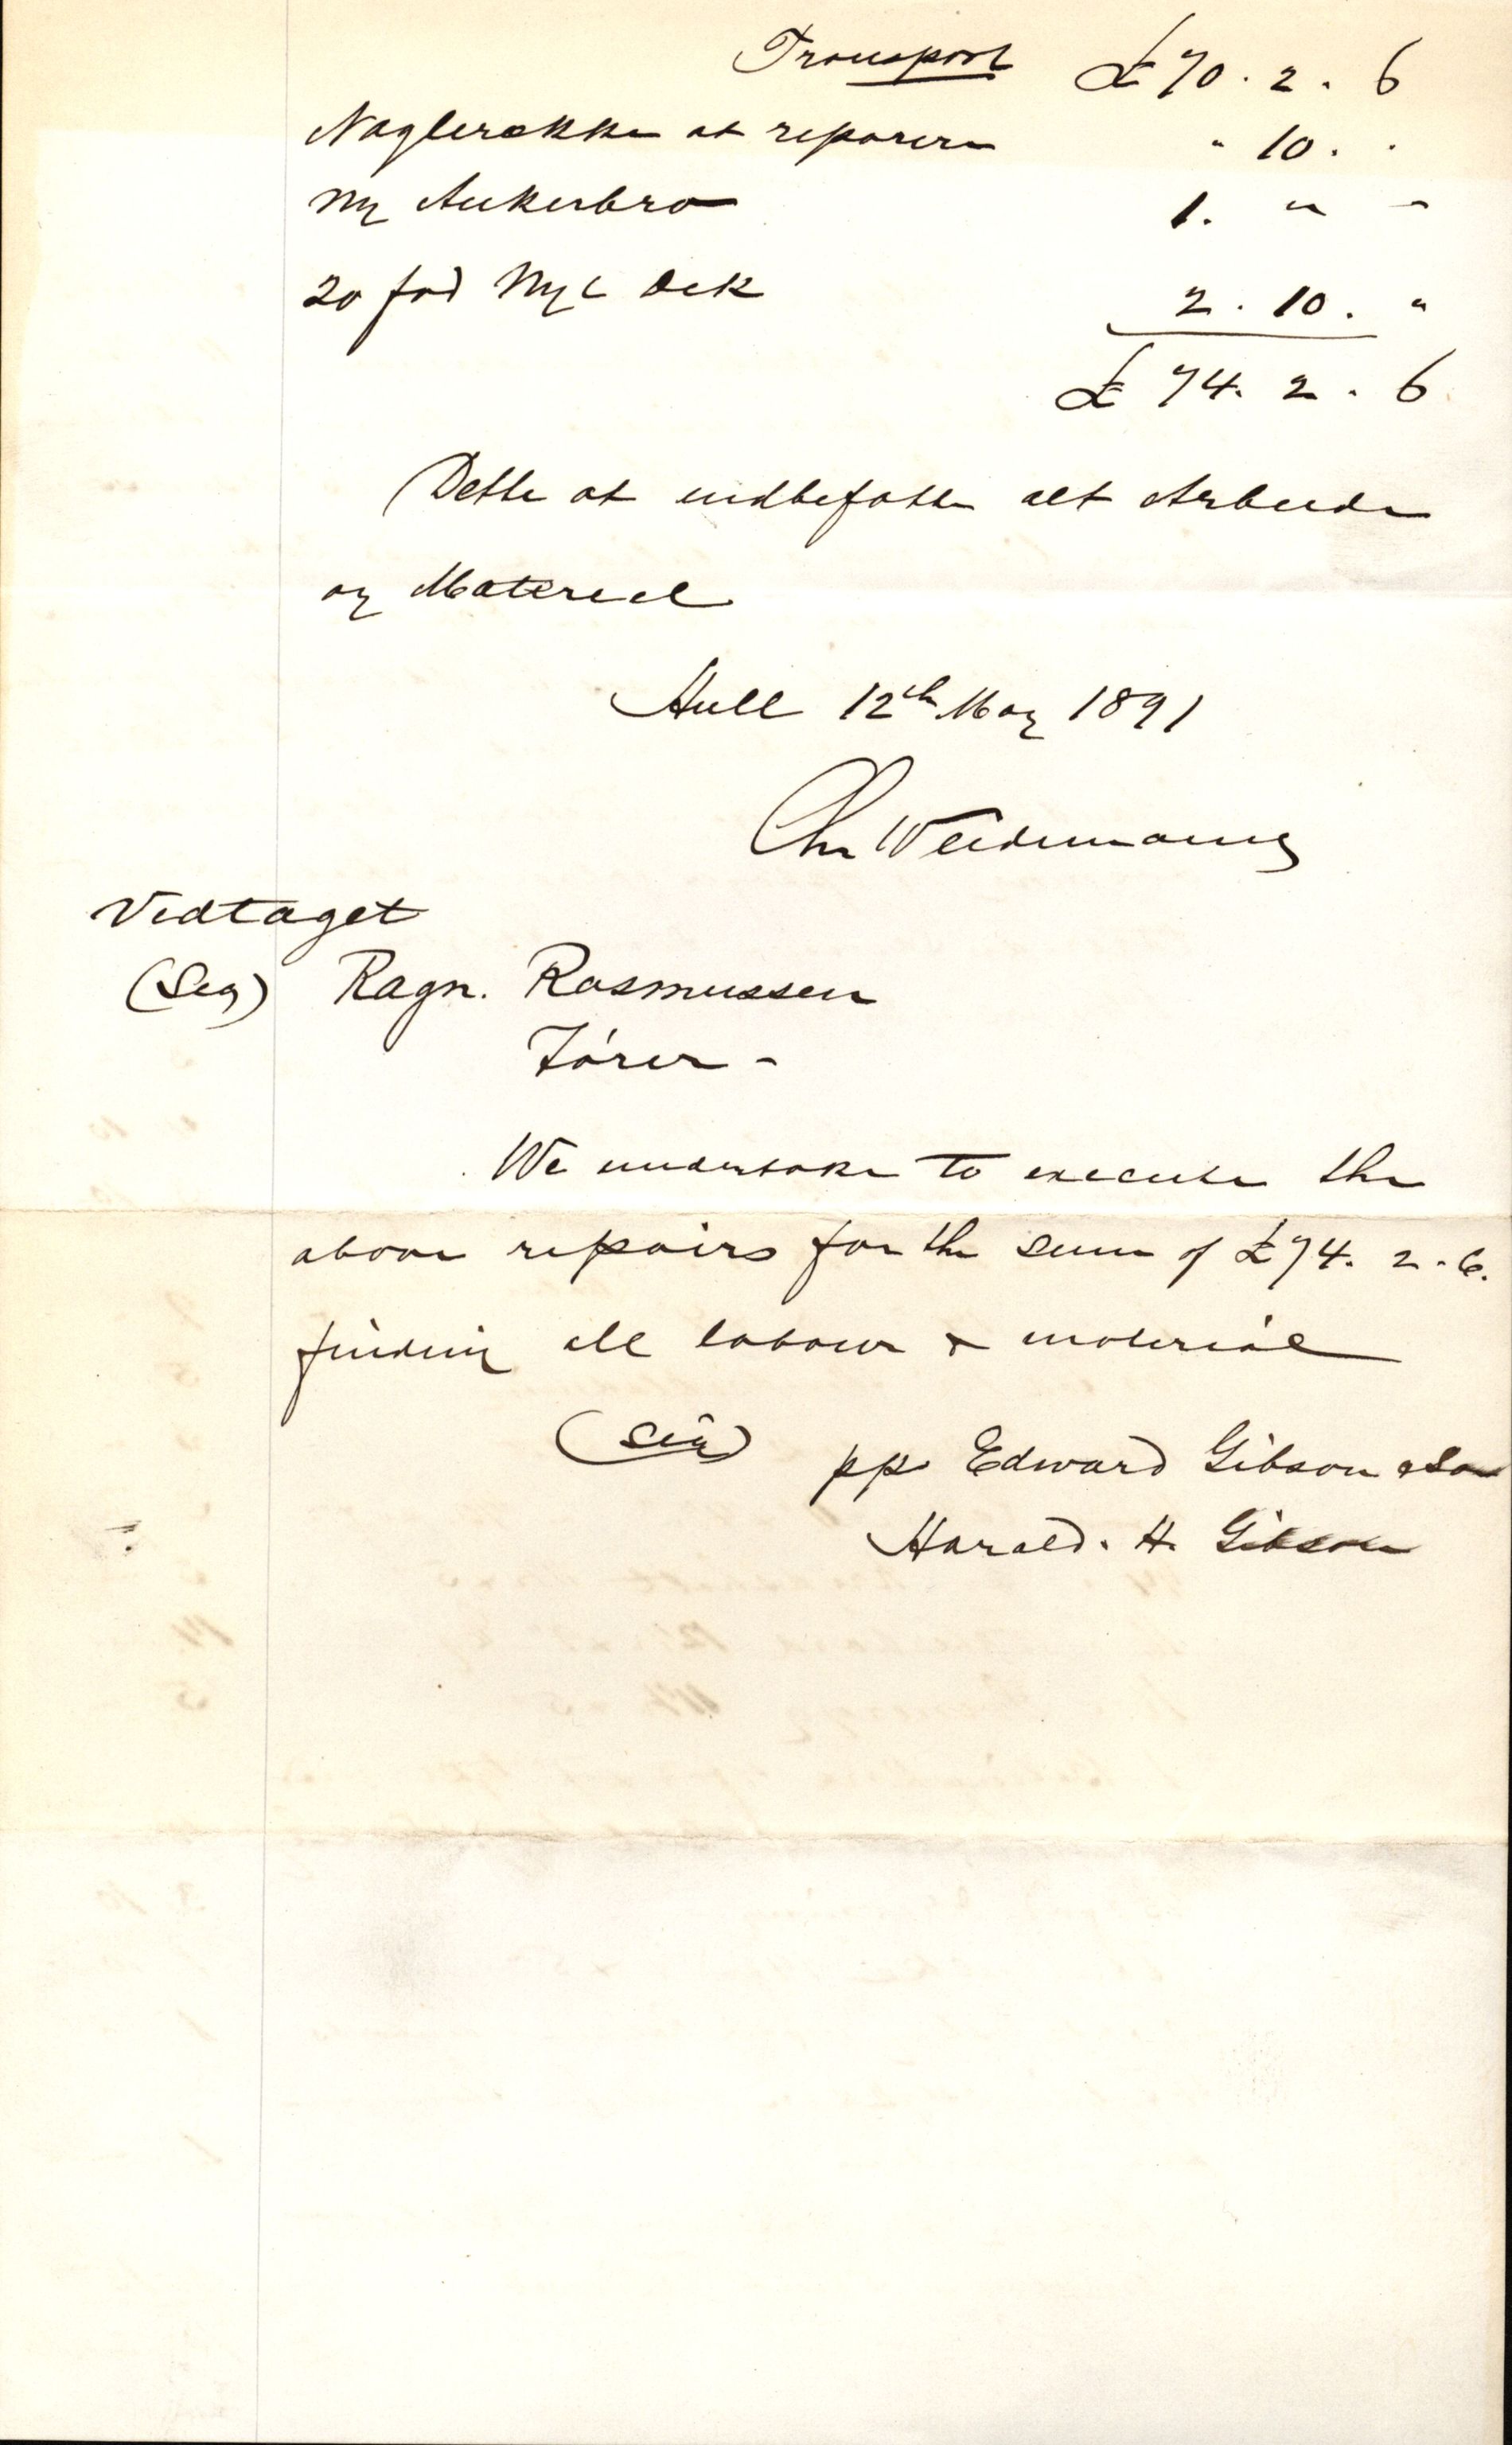 Transport £70. 2. 6
Naglerække at reparere " 10. "
Ny Ankerbro 1. " "
20 fod Nyt Dek 2. 10. "
£ 74. 2. 6
Dette at indbefatte alt Arbeide
og Materiel
Hull 12th May 1891
Chr Weidemann
Vedtaget
(Sig) Ragn. Rasmussen
Förer -
We undertake to execute the
above repairs for the sum of £74. 2. 6.
finding all labour & material
(Sig) pp Edward Gibson & Son
Harald. H. Gibson